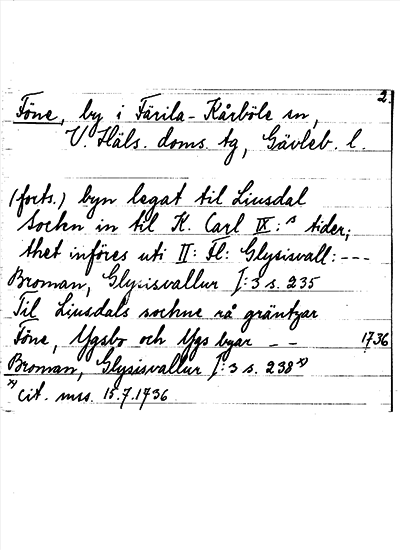 2.
Föne, by i Färila-Kårböle sn,
V. Häls. doms. tg, Gävleb. l.
(forts.) byn legat til Liusdal
Sockn in til K. Carl IX:s tider;
thet införes uti II: Fl: Glysisvall:---
Broman, Glysisvallur I:3 s. 235
Til Liusdals sochne rå gräntzar
Föne, Yg̈sbo och Ygs byar - - 1736
Broman, Glysisvallur I:3 s. 238 x)
x) cit. mss. 15.7.1736